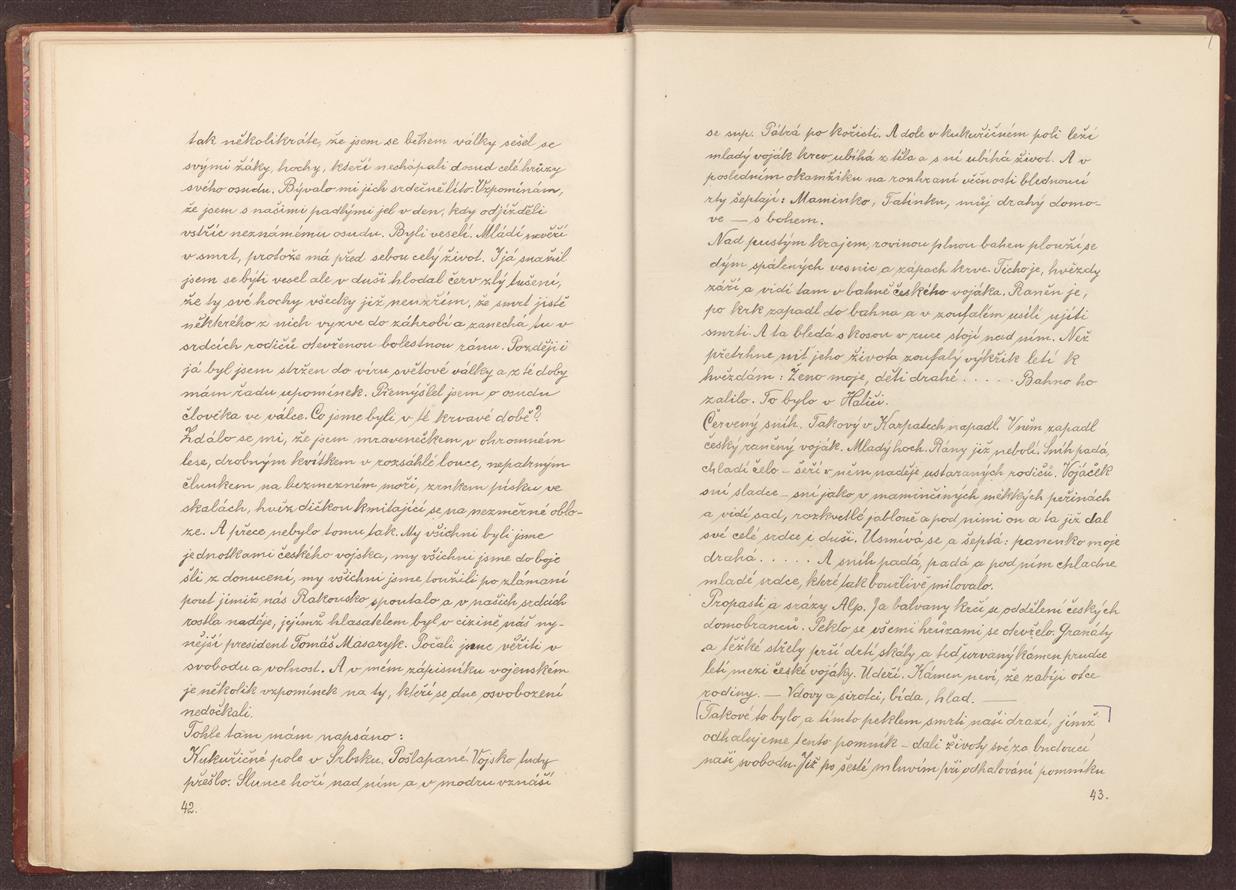 tak několikráte, že jsem se během války sešel se
svými žáky, hochy, kteří nechápali dosud celé hrůzy
svého osudu. Bývalo mi jich srdečně líto. Vzpomínám,
že jsem s našimi padlými jel v den, kdy odjížděli
vstříc neznámému osudu. Byli veselí. Mládí nevěří
v smrt, protože má před sebou celý život. I já snažil
jsem se býti vesel ale v duši hlodal červ zlý tušení,
že ty své hochy všecky již neuzřím, že smrt jistě
některého z nich vyzve do záhrobí a zanechá tu v
srdcích rodičů otevřenou bolestnou ránu. Později i
já byl jsem stržen do víru světové války a z té doby
mám řadu upomínek. Přemýšlel jsem o osudu
člověka ve válce. Co jsme byli v té krvavé době?
Zdálo se mi, že jsem mravenečkem v ohromném
lese, drobným kvítkem v rozsáhlé louce, nepatrným
člunkem na bezmezném moři, zrnkem písku ve
skalách, hvězdičkou kmitající se na nezměrné oblo-
ze. A přece nebylo tomu tak. My všichni byli jsme
jednotkami českého vojska, my všichni jsme do boje
šli z donucení, my všichni jsme toužili po zlámaní
pout jimiž nás Rakousko spoutalo a v našich srdcích
rostla naděje, jejímž hlasatelem byl v cizině náš ny-
nější president Tomáš Masaryk. Počali jsme věřiti v
svobodu a volnost. A v mém zápisníku vojenském
je několik vzpomínek na ty, kteří se dne osvobození
nedočkali.
Tohle tam mám napsáno:
Kukuřičné pole v Srbsku. Pošlapané. Vojsko tudy
přešlo. Slunce hoří nad ním a v modru vznáší
42.
se sup. Pátrá po kořisti. A dole v kukuřičném poli leží
mladý voják krev ubíhá z těla a s ní ubíhá život. A v
posledním okamžiku na rozhraní věčnosti blednoucí
rty šeptají: Maminko, Tatínku, můj drahý domo-
ve — s bohem.
Nad pustým krajem, rovinou plnou bahen plouží se
dým spálených vesnic a zápach krve. Ticho je, hvězdy
září a vidí tam v bahně českého vojáka. Raněn je,
po krk zapadl do bahna a v zoufalém úsilí ujíti
smrti. A ta bledá s kosou v ruce stojí nad ním. Než
přetrhne nit jeho života zoufalý výkřik letí k
hvězdám: Ženo moje, děti drahé ..... Bahno ho
zalilo. To bylo v Haliči.
Červený sníh. Takový v Karpatech napadl. V něm zapadl
český raněný voják. Mladý hoch. Rány již nebolí. Sníh padá,
chladí čelo — šeří v něm naděje ustaraných rodičů. Vojáček
sní sladce — sní jako v maminčiných měkkých peřinách
a vidí sad, rozkvetlé jabloně a pod nimi on a ta již dal
své celé srdce i duši. Usmívá se a šeptá: panenko moje
drahá ..... A sníh padá, padá a pod ním chladne
mladé srdce, které tak bouřlivě milovalo.
Propasti a srázy Alp. Za balvany krčí se oddělení českých
domobranců. Peklo se všemi hrůzami se otevřelo. Granáty
a těžké střely prší drtí skály a teď urvaný kámen prudce
letí mezi české vojáky. Udeří. Kámen neví, že zabíjí otce
rodiny. — Vdovy a sirotci, bída, hlad. —
Takové to bylo, a tímto peklem smrti naši drazí, jímž
odhalujeme tento pomník — dali životy své za budoucí
naši svobodu. Již po šesté mluvím při odhalování pomníku
43.